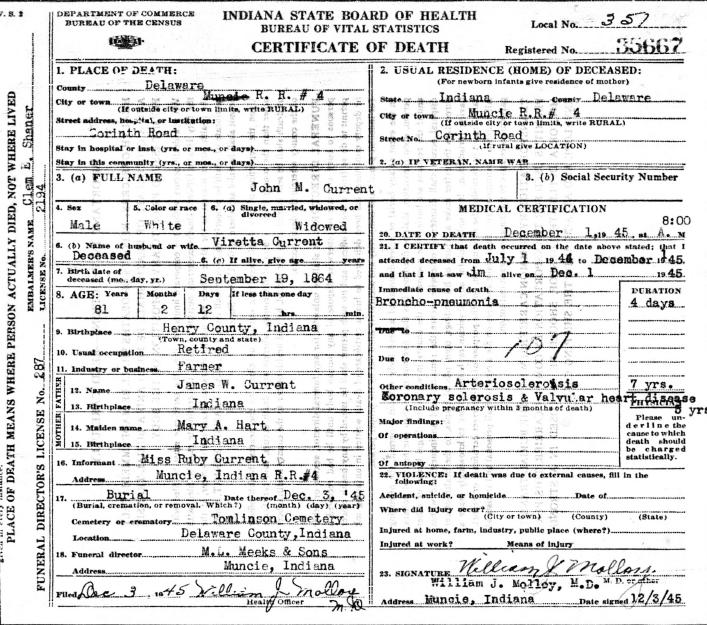 V. S. 2
DEPARTMENT OF COMMERCE
BUREAU OF THE CENSUS
INDIANA STATE BOARD OF HEALTH
BUREAU OF VITAL STATISTICS
CERTIFICATE OF DEATH
Local No. 357
Registered No. 35667
PLACE OF DEATH MEANS WHERE PERSON ACTUALLY DIED, NOT WHERE LIVED
EMBALMER'S NAME Clem E. Shaner
LICENSE No. 2194
FUNERAL DIRECTOR'S LICENSE No. 287
1. PLACE OF DEATH:
County Delaware
City or town Muncie R. R. # 4
(If outside city or town limits, write RURAL)
Street address, hospital, or institution:
Corinth Road
Stay in hospital or inst. (yrs. or mos., or days)
Stay in this community (yrs., or mos., or days)
2. USUAL RESIDENCE (HOME) OF DECEASED:
(For newborn infants give residence of mother)
State Indiana County Delaware
City or town Muncie R.R.# 4
(If outside city or town limits, write RURAL)
Street No. Corinth Road
(If rural give LOCATION)
2. (a) IF VETERAN, NAME WAR
3. (a) FULL NAME
John M. Current
3. (b) Social Security Number
4. Sex
Male
5. Color or race
White
6. (a) Single, married, widowed, or divorced
Widowed
6. (b) Name of husband or wife Viretta Current
Deceased
6. (c) If alive, give age years
7. Birth date of
deceased (mo., day, yr.) September 19, 1864
8. AGE: Years Months Days If less than one day
81 2 12 hrs. min.
9. Birthplace Henry County, Indiana
(Town, county and state)
10. Usual occupation Retired
11. Industry or business Farmer
FATHER
12. Name James W. Current
13. Birthplace Indiana
MOTHER
14. Maiden name Mary A. Hart
15. Birthplace Indiana
16. Informant Miss Ruby Current
Address Muncie, Indiana R.R.#4
17. Burial Date thereof Dec. 3, '45
(Burial, cremation, or removal. Which?) (month) (day) (year)
Cemetery or crematory Tomlinson Cemetery
Location Delaware County, Indiana
18. Funeral director M.L. Meeks & Sons
Address Muncie, Indiana
Filed Dec 3 1945 William J Molloy
Health Officer M.D.
MEDICAL CERTIFICATION
8:00
20. DATE OF DEATH December 1, 19 45, at A. M
21. I CERTIFY that death occurred on the date above stated; that I
attended deceased from July 1 to December 1 45
and that I last saw im alive on Dec. 1 1945
Immediate cause of death
DURATION
Broncho-pneumonia 4 days
Due to
107
Due to
Other conditions Arteriosclerosis 7 yrs.
Koronary sclerosis & Valvular heart disease
(Include pregnancy within 3 months of death)
yrs
PHYSICIAN
Major findings:
Of operations
Of autopsy
Please underline the
cause to which
death should
be charged
statistically.
22. VIOLENCE: If death was due to external causes, fill in the
following:
Accident, suicide, or homicide Date of
Where did injury occur?
(City or town) (County) (State)
Injured at home, farm, industry, public place (where?)
Injured at work? Means of injury
23. SIGNATURE William J Molloy
William J. Molloy, M.D. M. D. or other
Address Muncie, Indiana Date signed 12/3/45